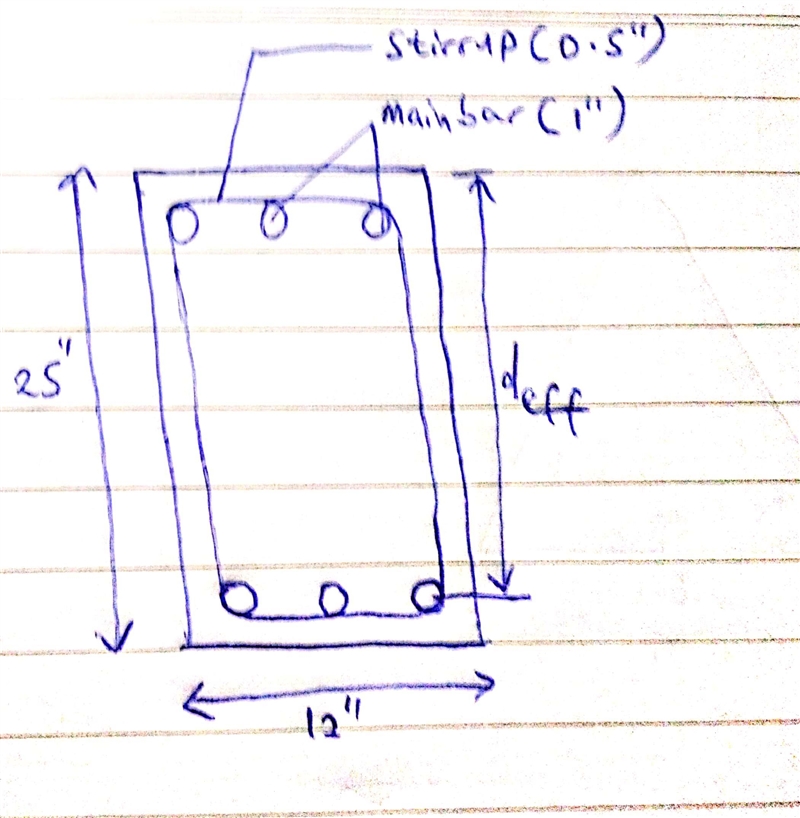 stirrup(0.5")
mainbar(1")
25"
deff
12"